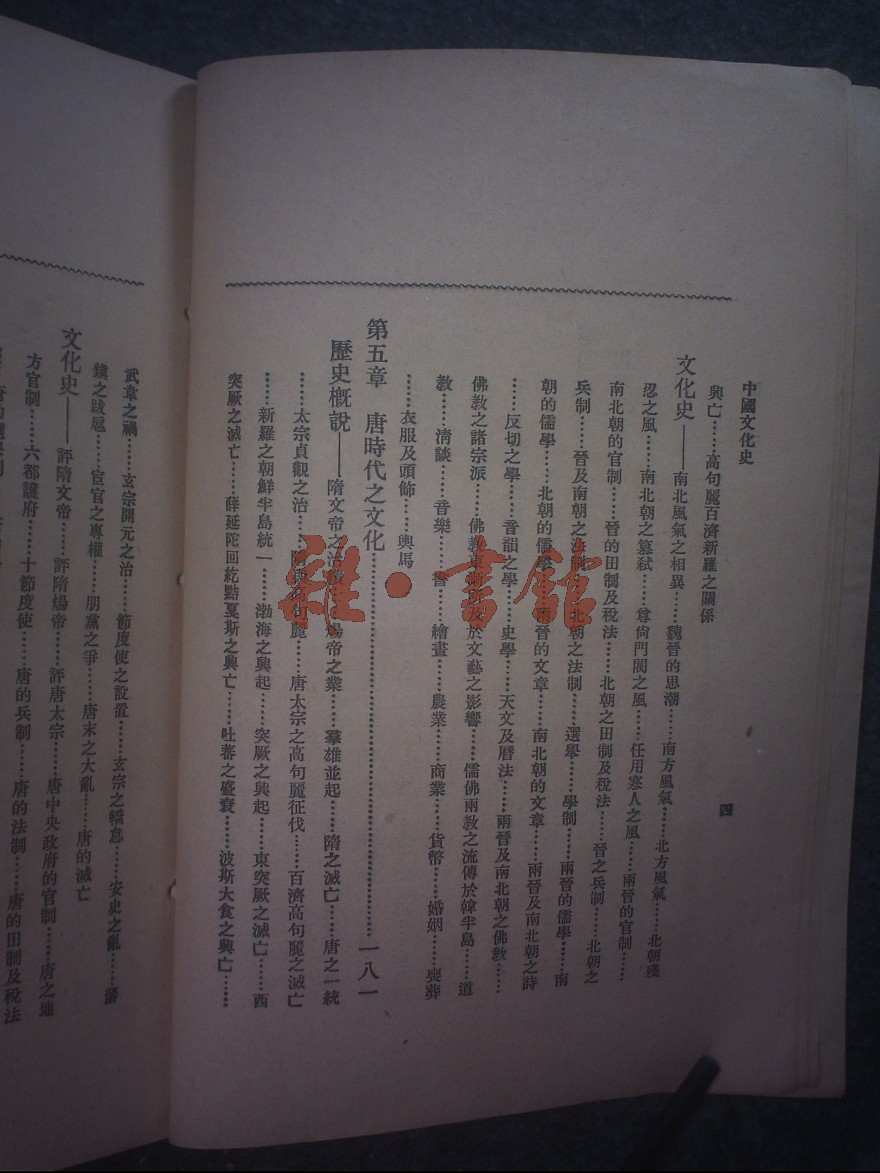 中國文化史
四
興亡……高句麗百濟新羅之關係
文化史——南北風氣之相異……魏晉的思潮……南方風氣……北方風氣……北朝殘
忍之風……南北朝之篡弒……尊尙門閥之風……任用寒人之風……兩晉的官制……
南北朝的官制……晉的田制及稅法……北朝之田制及稅法……晉之兵制……北朝之
兵制……晉及南朝之法制……北朝之法制……選舉……學制……兩晉的儒學……南
朝的儒學……北朝的儒學……兩晉的文章……南北朝的文章……兩晉及南北朝之詩
……反切之學……音韻之學……史學……天文及曆法……兩晉及南北朝之佛教……
佛教之諸宗派……佛教東及於文藝之影響……儒佛兩教之流傳於韓半島……道
教……淸談……音樂……書……繪畫……農業……商業……貨幣……婚姻……喪葬
……衣服及頭飾……輿馬
第五章 唐時代之文化……一八一
歷史概說——隋文帝之治……煬帝之業……羣雄並起……隋之滅亡……唐之一統
……太宗貞觀之治……高句麗……唐太宗之高句麗征伐……百濟高句麗之滅亡
……新羅之朝鮮半島統一……渤海之興起……突厥之興起……東突厥之滅亡……西
突厥之滅亡……薛延陀回紇黠戛斯之興亡……吐蕃之盛衰……波斯大食之興亡……
武韋之禍……玄宗開元之治……節度使之設置……玄宗之驕怠……安史之亂……藩
鎭之跋扈……宦官之專權……朋黨之爭……唐末之大亂……唐的滅亡
文化史——評隋文帝……評隋煬帝……評唐太宗……唐中央政府的官制……唐之地
方官制……六都護府……十節度使……唐的兵制……唐的法制……唐的田制及稅法
雜·書館